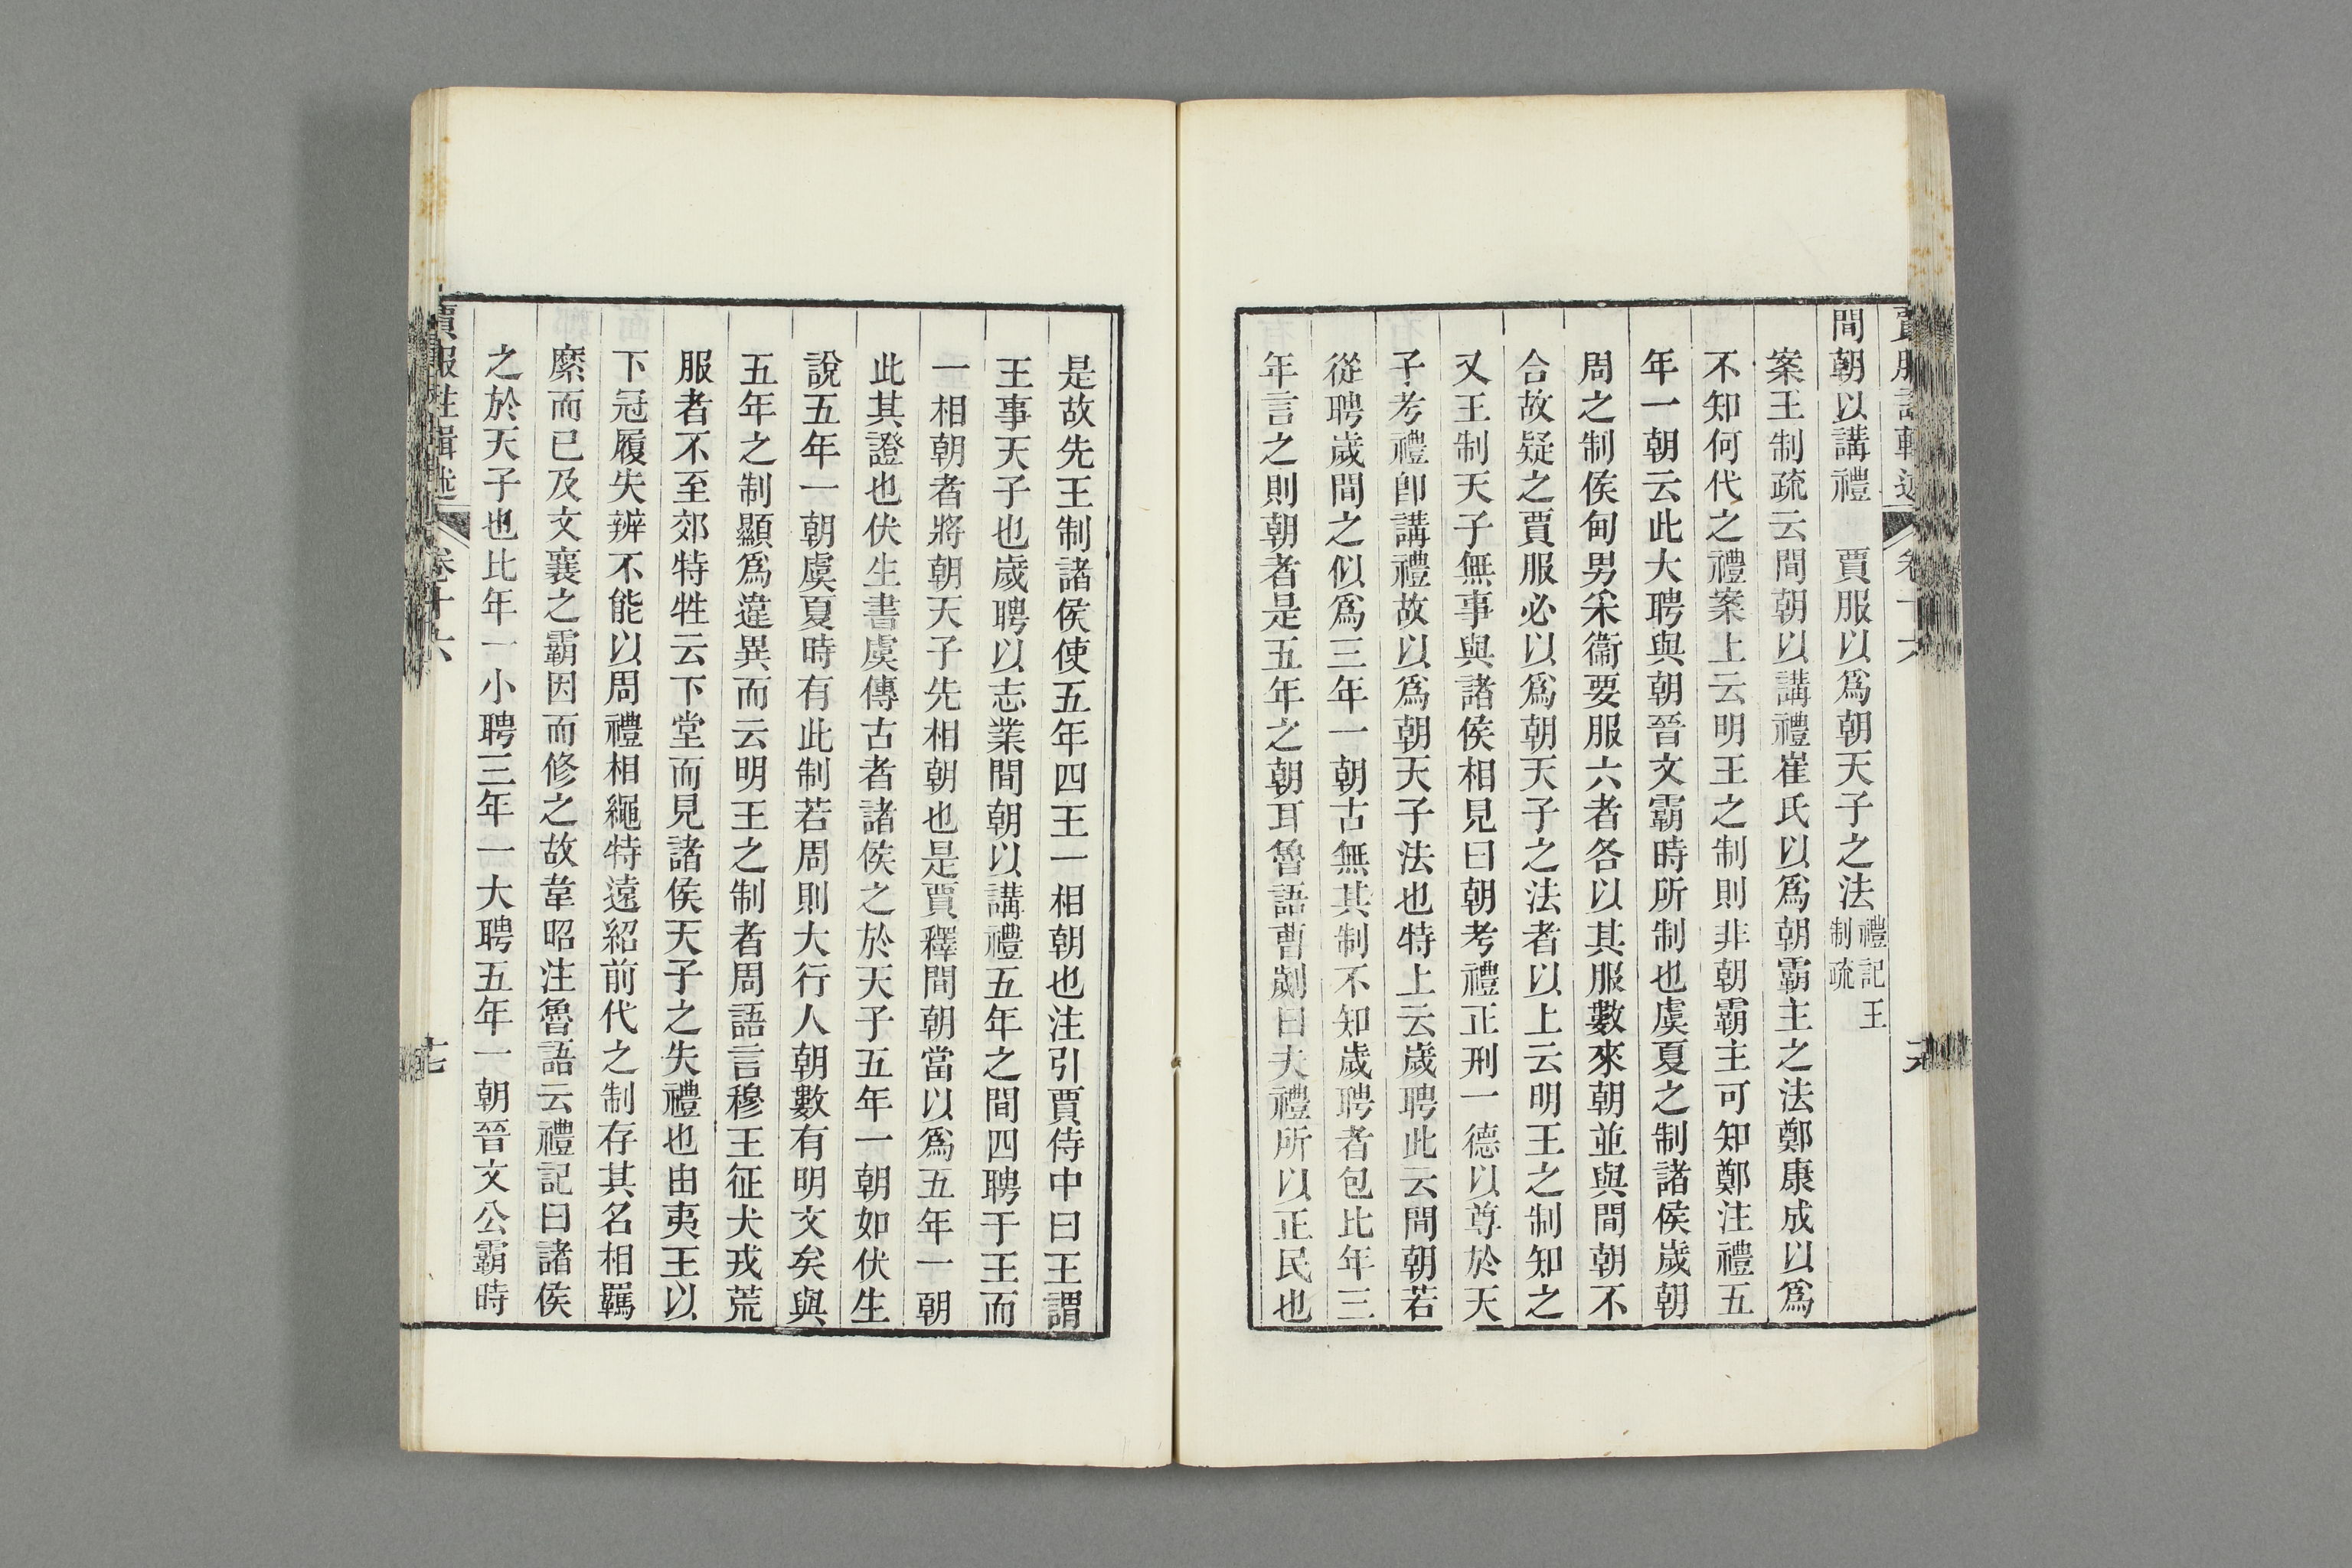 賈服註輯述 卷十六
間朝以講禮 賈服以爲朝天子之法禮記王制疏
案王制疏云間朝以講禮崔氏以爲朝霸主之法鄭康成以爲
不知何代之禮案上云明王之制則非朝霸主可知鄭注禮五
年一朝云此大聘與朝晉文霸時所制也虞夏之制諸侯歲朝
周之制侯甸男采衞要服六者各以其服數來朝並與間朝不
合故疑之賈服必以爲朝天子之法者以上云明王之制知之
又王制天子無事與諸侯相見曰朝考禮正刑一德以尊於天
子考禮卽講禮故以爲朝天子法也特上云歲聘此云間朝若
從聘歲間之似爲三年一朝古無其制不知歲聘者包比年三
年言之則朝者是五年之朝耳魯語曹劌曰夫禮所以正民也
是故先王制諸侯使五年四王一相朝也注引賈侍中曰王謂
王事天子也歲聘以志業間朝以講禮五年之間四聘于王而
一相朝者將朝天子先相朝也是賈釋間朝當以爲五年一朝
此其證也伏生書虞傳古者諸侯之於天子五年一朝如伏生
說五年一朝虞夏時有此制若周則大行人朝數有明文矣與
五年之制顯爲違異而云明王之制者周語言穆王征犬戎荒
服者不至郊特牲云下堂而見諸侯天子之失禮也由夷王以
下冠履失辨不能以周禮相繩特遠紹前代之制存其名相羈
縻而已及文襄之霸因而修之故韋昭注魯語云禮記曰諸侯
之於天子也比年一小聘三年一大聘五年一朝晉文公霸時
賈服註輯述 卷十六 十七